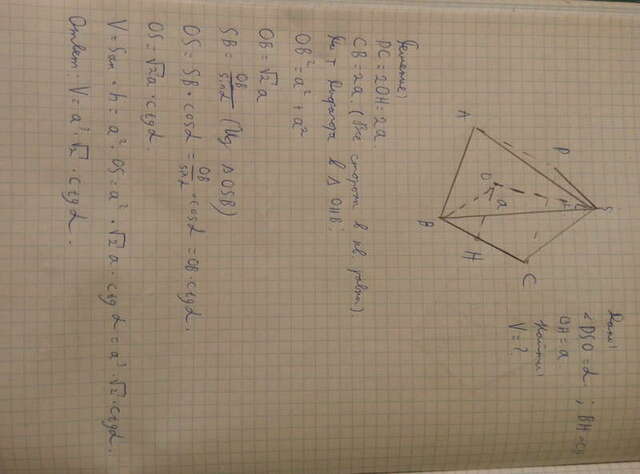 Дано:
∠DSO = α ; BH = CH
OH = a
Найти:
V = ?
S
D
α
O
a
A
B
H
C
Решение:
DC = 2OH = 2a
CB = 2a. (Все стороны в кв. равны).
По т. Пифагора в Δ OHB:
OB² = a² + a²
OB = √2 a
SB = OB/sinα (Из Δ OSB)
OS = SB · cosα = OB/sinα · cosα = OB · ctgα.
OS = √2 a · ctgα.
V = Sосн · h = a² · OS = a² · √2 a · ctgα = a³ · √2 · ctgα.
Ответ: V = a³ · √2 · ctgα.